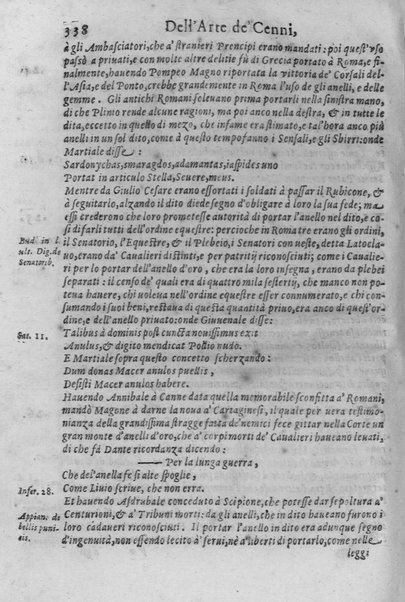 338 Dell'Arte de' Cenni,
à gli Ambasciatori, che a' stranieri Prencipi erano mandati: poi quest'vso
passò a priuati, e con molte altre delitie fù di Grecia portato à Roma, e fi-
nalmente, hauendo Pompeo Magno riportata la vittoria de' Corsali del-
l'Asia, e del Ponto, crebbe grandemente in Roma l'uso de gli anelli, e delle
gemme. Gli antichi Romani soleuano prima portarli nella sinistra mano,
di che Plinio rende alcune ragioni, ma poi anco nella destra, & in tutte le
dita, eccetto in quello di mezo, che infame era stimato, e tal'hora anco più
anelli in un sol dito, come à questo tempo fanno i Sensali, e gli Sbirri: onde
Martiale disse:
Sardonychas, smaragdos, adamantas, iaspides uno
Portat in articulo Stella, Seuere, meus.
Mentre da Giulio Cesare erano essortati i soldati à passar il Rubicone, &
à seguitarlo, alzando il dito diede segno d'obligare à loro la sua fede; ma
essi crederono che loro promettesse autorità di portar l'anello nel dito, è co-
si di farli tutti dell'ordine equestre: percioche in Roma tre erano gli ordini,
Bud. in l.
il Senatorio, l'Equestre, & il Plebeio, i Senatori con ueste, detta Latocla-
ult. Dig. de
uo, erano da' Caualieri distinti, e per patritij riconosciuti; come i Caualie-
Senatorib.
ri per lo portar dell'anello d'oro, che era la loro insegna, erano da plebei
separati: il censo de' quali era di quatro mila sestertij, che manco non po-
teua hauere, chi uoleua nell'ordine equestre esser connumerato, e chi con-
sumando i suoi beni, restaua di questa quantità priuo, era anco di quest'or-
dine, e dell'anello priuato: onde Giuuenale disse:
Sat. 11.
Talibus à dominis post cuncta nouissimus exit
Anulus, & digito mendicat Pollio nudo.
E Martiale sopra questo concetto scherzando:
Dum donas Macer anulos puellis,
Desisti Macer anulos habere.
Hauendo Annibale à Canne data quella memorabile sconfitta a' Romani,
mandò Magone à darne la noua a' Cartaginesi, il quale per uera testimo-
nianza della grandissima stragge fatta de' nemici fece gittar nella Corte un
gran monte d'anelli d'oro, che a' corpi morti de' Caualieri haueano leuati,
di che fà Dante ricordanza dicendo:
—— Per la lunga guerra,
Che del'anella fe si alte spoglie,
Infer. 28.
Come Liuio scriue, che non erra.
Et hauendo Asdrubale conceduto à Scipione, che potesse dar sepoltura a'
Appian. de
Centurioni, & a' Tribuni morti: da gli anelli, che in dito haueano furono i
bellis puni-
loro cadaueri riconosciuti. Il portar l'anello in dito era adunque segno
cis.
d'ingenuità, non essendo lecito à serui, nè a'liberti di portarlo, come nelle
leggi